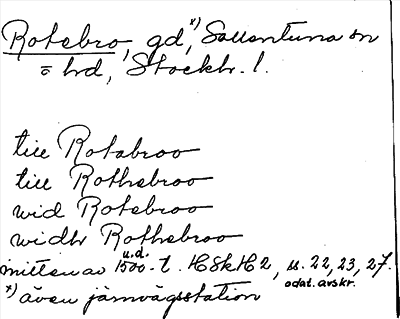 Rotebro, gd,x) Sollentuna sn
o hd, Stockh. l.
till Rotabroo
till Rothebroo
wid Rotebroo
widh Rothebroo
mitten av 1500-t. u.d. HSkH2, ss. 22, 23, 27.
odat. avskr.
x) även järnvägsstation